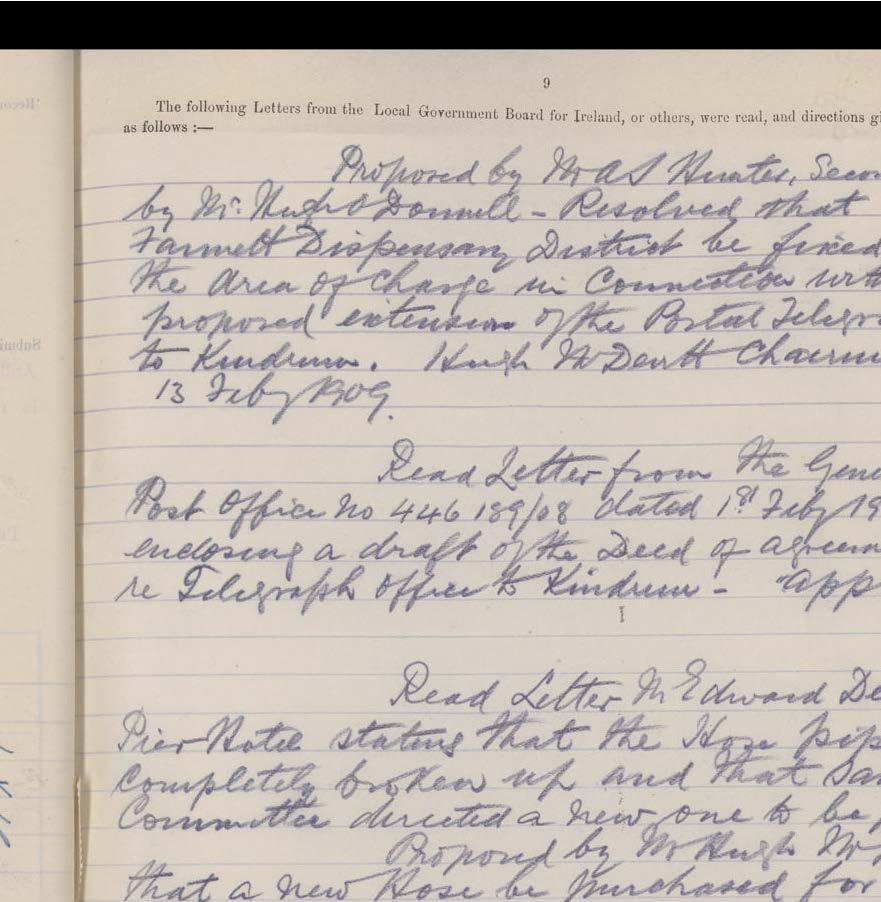 9
The following Letters from the Local Government Board for Ireland, or others, were read, and directions gi
as follows :—
Proposed by Mr A S Hunter, Secon
by Mr. Hugh O Donnell - Resolved that
Fannett Dispensary District be fixed
the Area of Charge in Connection with
proposed extension of the Postal Telegr
to Kindrum. Hugh McDevitt Chairm
13 Feby 1909.
Read Letter from the Gene
Post Office No 446 189/08 dated 1st Feby 19
enclosing a draft of the Deed of agreem
re Telegraph Office to Kindrum - "app
Read Letter Mr Edward De
Pier Hotel stating that the Hose pip
completely broken up and that San
Committee directed a new one to be
Proposed by Mr Hugh Mc
that a new Hose be purchased for